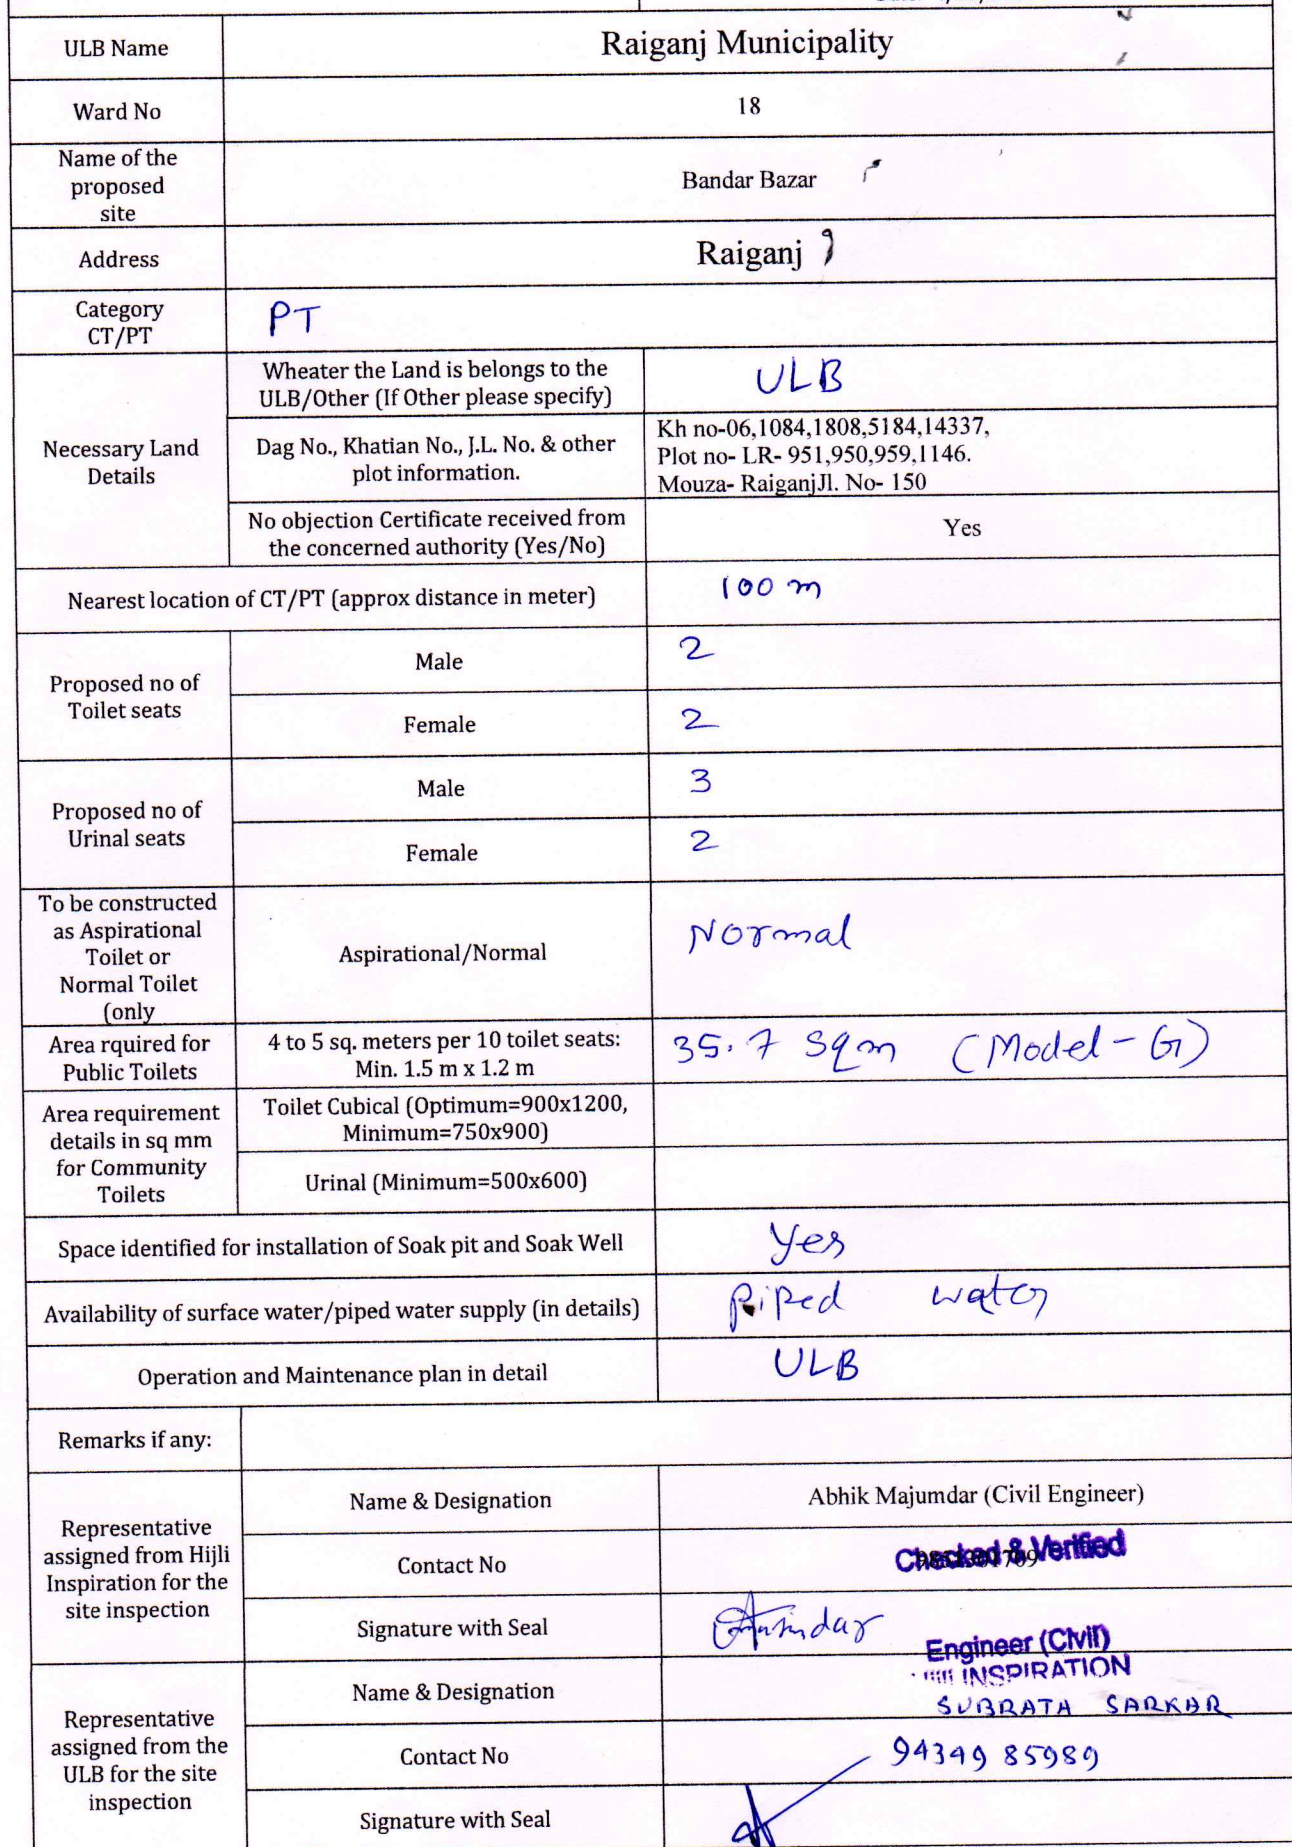 ULB Name
Raiganj Municipality
Ward No
18
Name of the
proposed
site
Bandar Bazar
Address
Raiganj
Category
CT/PT
PT
Necessary Land
Details
Wheater the Land is belongs to the
ULB/Other (If Other please specify)
ULB
Dag No., Khatian No., J.L. No. & other
plot information.
Kh no-06,1084,1808,5184,14337,
Plot no- LR- 951,950,959,1146.
Mouza- RaiganjJl. No- 150
No objection Certificate received from
the concerned authority (Yes/No)
Yes
Nearest location of CT/PT (approx distance in meter)
100 m
Proposed no of
Toilet seats
Male
2
Female
2
Proposed no of
Urinal seats
Male
3
Female
2
To be constructed
as Aspirational
Toilet or
Normal Toilet
(only
Aspirational/Normal
Normal
Area rquired for
Public Toilets
4 to 5 sq. meters per 10 toilet seats:
Min. 1.5 m x 1.2 m
35.7 Sqm (Model-G)
Area requirement
details in sq mm
for Community
Toilets
Toilet Cubical (Optimum=900x1200,
Minimum=750x900)
Urinal (Minimum=500x600)
Space identified for installation of Soak pit and Soak Well
Yes
Availability of surface water/piped water supply (in details)
Piped water
Operation and Maintenance plan in detail
ULB
Remarks if any:
Representative
assigned from Hijli
Inspiration for the
site inspection
Name & Designation
Abhik Majumdar (Civil Engineer)
Contact No
Checked & Verified
Signature with Seal
Engineer (Civil)
INSPIRATION
Representative
assigned from the
ULB for the site
inspection
Name & Designation
SUBRATA SARKAR
Contact No
94349 85989
Signature with Seal